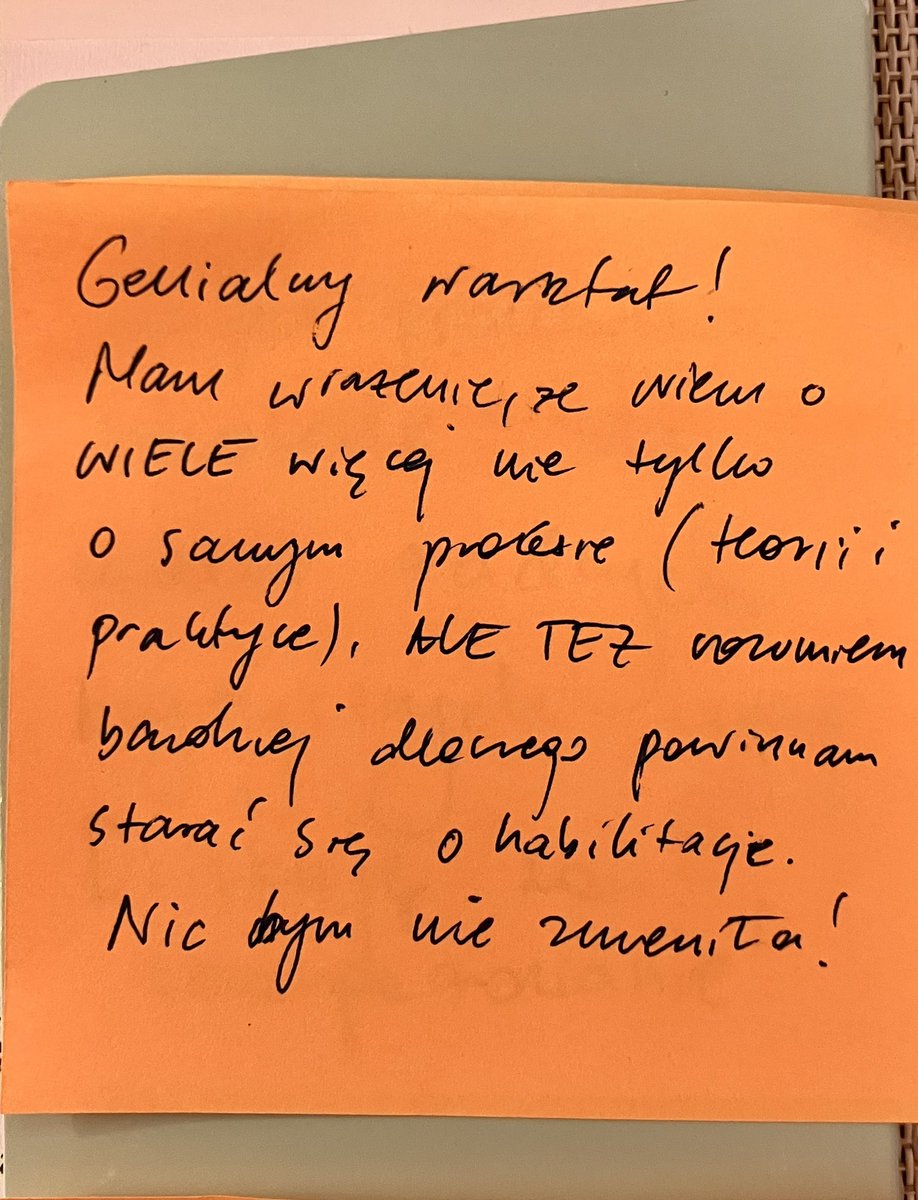 Genialny warsztat!
Mam wrażenie, że wiem o
WIELE więcej nie tylko
o samym procesie (teorii i
praktyce), ALE TEŻ rozumiem
bardziej dlaczego powinnam
starać się o habilitację.
Nic bym nie zmieniła!